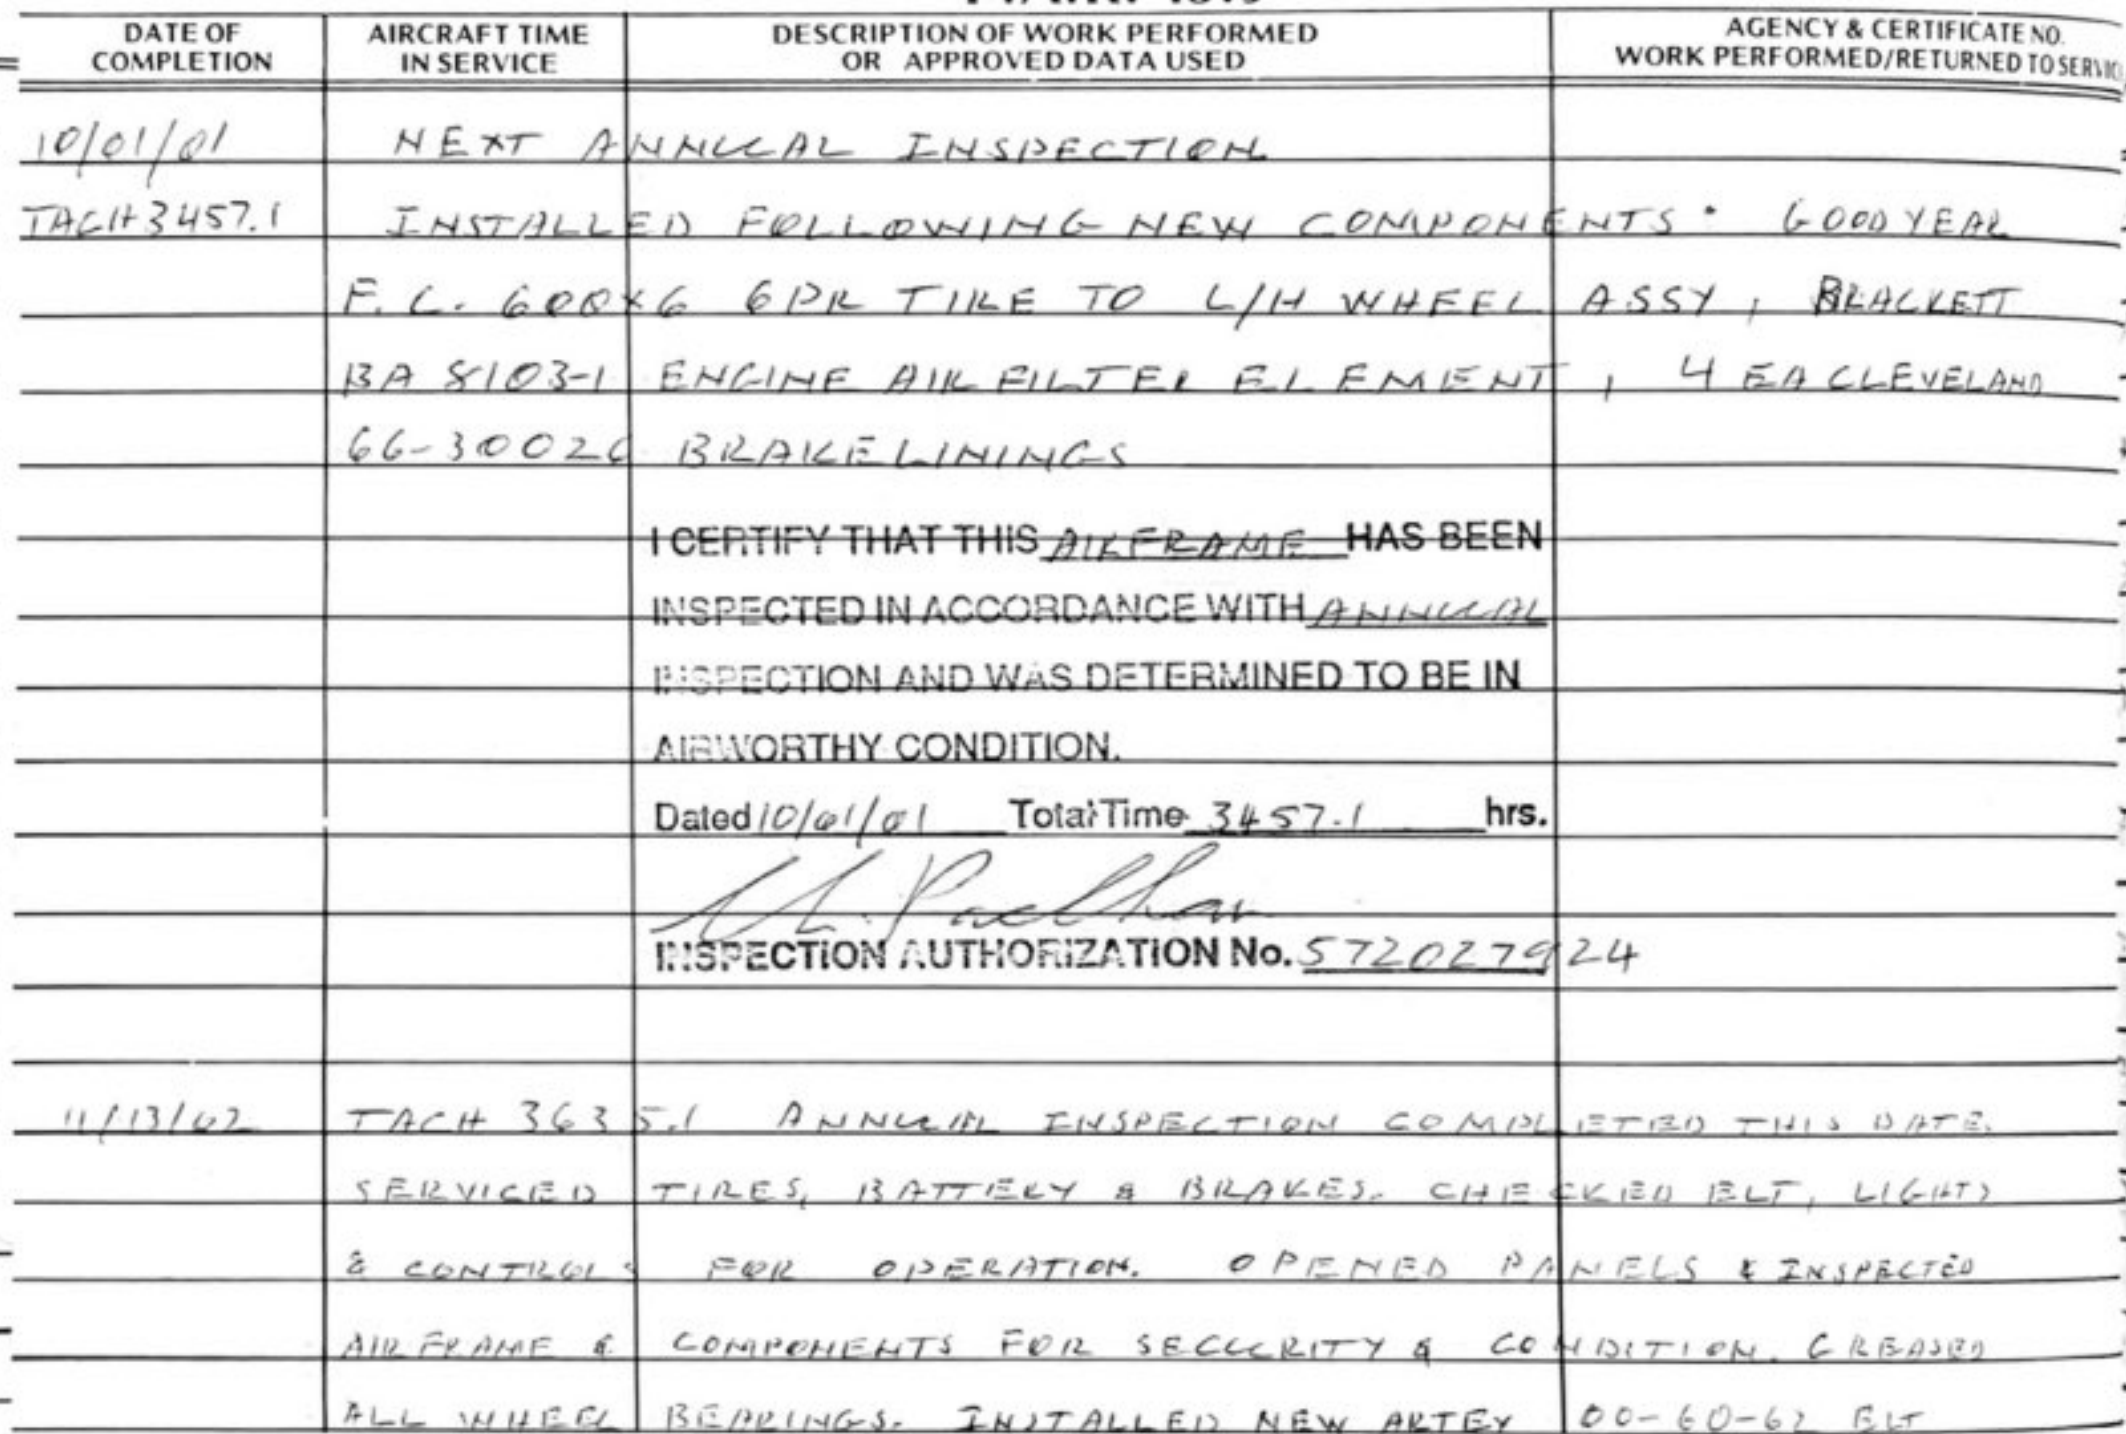 DATE OF COMPLETION AIRCRAFT TIME IN SERVICE DESCRIPTION OF WORK PERFORMED OR APPROVED DATA USED AGENCY & CERTIFICATE NO. WORK PERFORMED/RETURNED TO SERVICE
10/01/01 NEXT ANNUAL INSPECTION
TACH 3457.1 INSTALLED FOLLOWING NEW COMPONENTS: GOODYEAR
F.C. 600X6 6PR TIRE TO L/H WHEEL ASSY, BRACKETT
BA 8103-1 ENGINE AIR FILTER ELEMENT, 4 EA CLEVELAND
66-30026 BRAKE LININGS
I CERTIFY THAT THIS AIRFRAME HAS BEEN
INSPECTED IN ACCORDANCE WITH ANNUAL
INSPECTION AND WAS DETERMINED TO BE IN
AIRWORTHY CONDITION.
Dated 10/01/01 Total Time 3457.1 hrs.
INSPECTION AUTHORIZATION No. 572027924
11/13/02 TACH 3635.1 ANNUAL INSPECTION COMPLETED THIS DATE.
SERVICED TIRES, BATTERY & BRAKES. CHECKED ELT, LIGHTS
& CONTROLS FOR OPERATION. OPENED PANELS & INSPECTED
AIRFRAME & COMPONENTS FOR SECURITY & CONDITION. GREASED
ALL WHEEL BEARINGS. INSTALLED NEW ARTEX 00-60-62 ELT